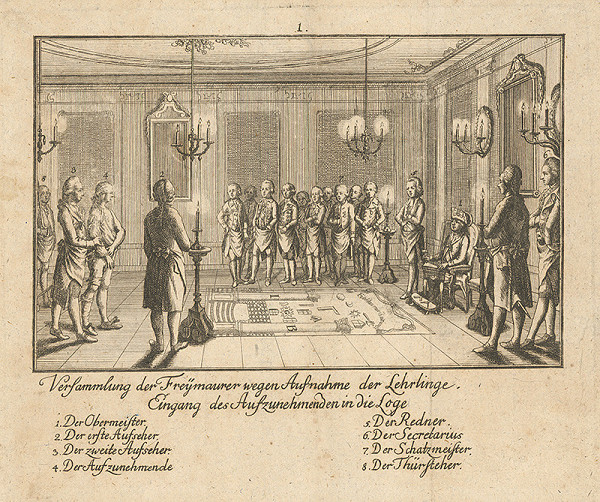 1.
Versammlung der Freÿmaurer wegen Aufnahme der Lehrlinge.
Eingang des Aufzunehmenden in die Loge
1. Der Obermeister.
2. Der erste Aufseher.
3. Der zweite Aufseher.
4. Der Aufzunehmende
5. Der Redner.
6. Der Secretarius
7. Der Schatzmeister.
8. Der Thürsteher.